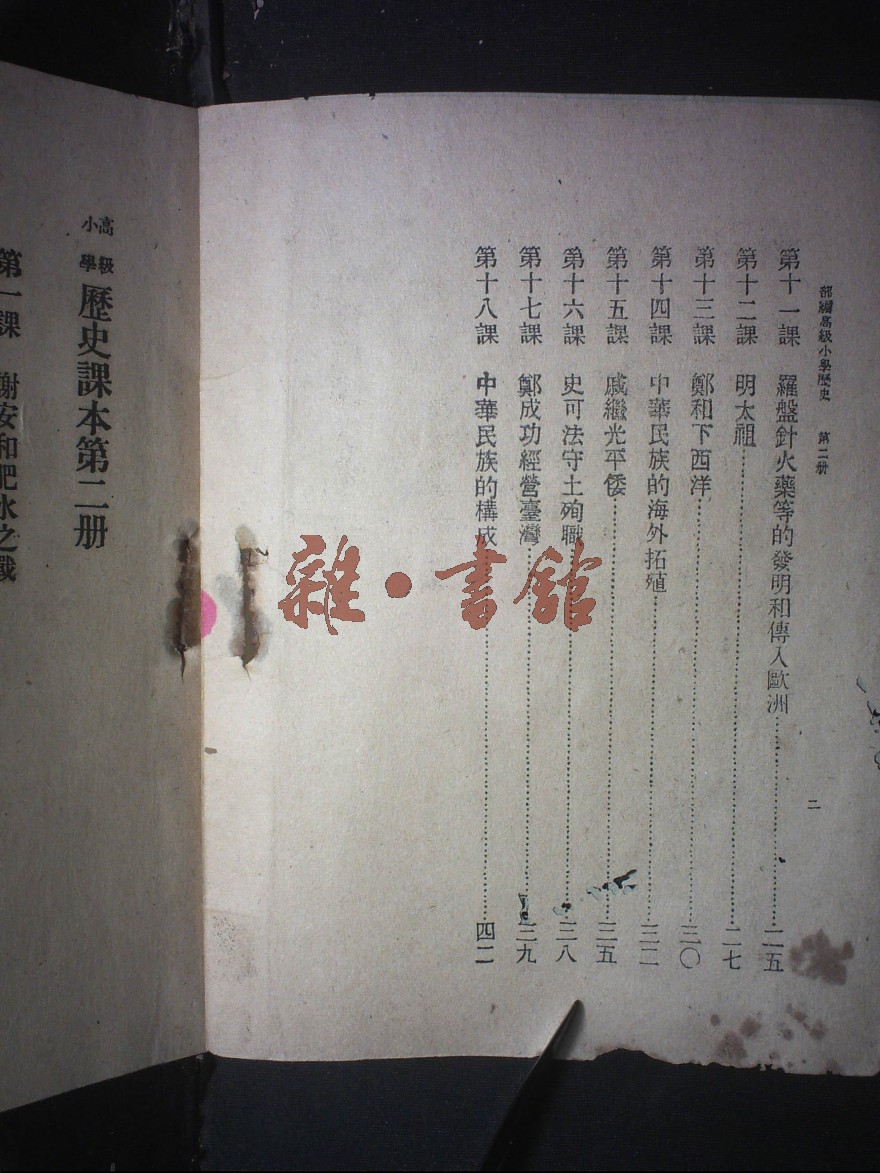 部編高級小學歷史 第二册
二
第十一課 羅盤針火藥等的發明和傳入歐洲……二五
第十二課 明太祖……二七
第十三課 鄭和下西洋……三〇
第十四課 中華民族的海外拓殖……三二
第十五課 戚繼光平倭……三五
第十六課 史可法守土殉職……三八
第十七課 鄭成功經營臺灣……三九
第十八課 中華民族的構成……四二
高級小學 歷史課本第二册
第一課 謝安和肥水之戰
雜·書館